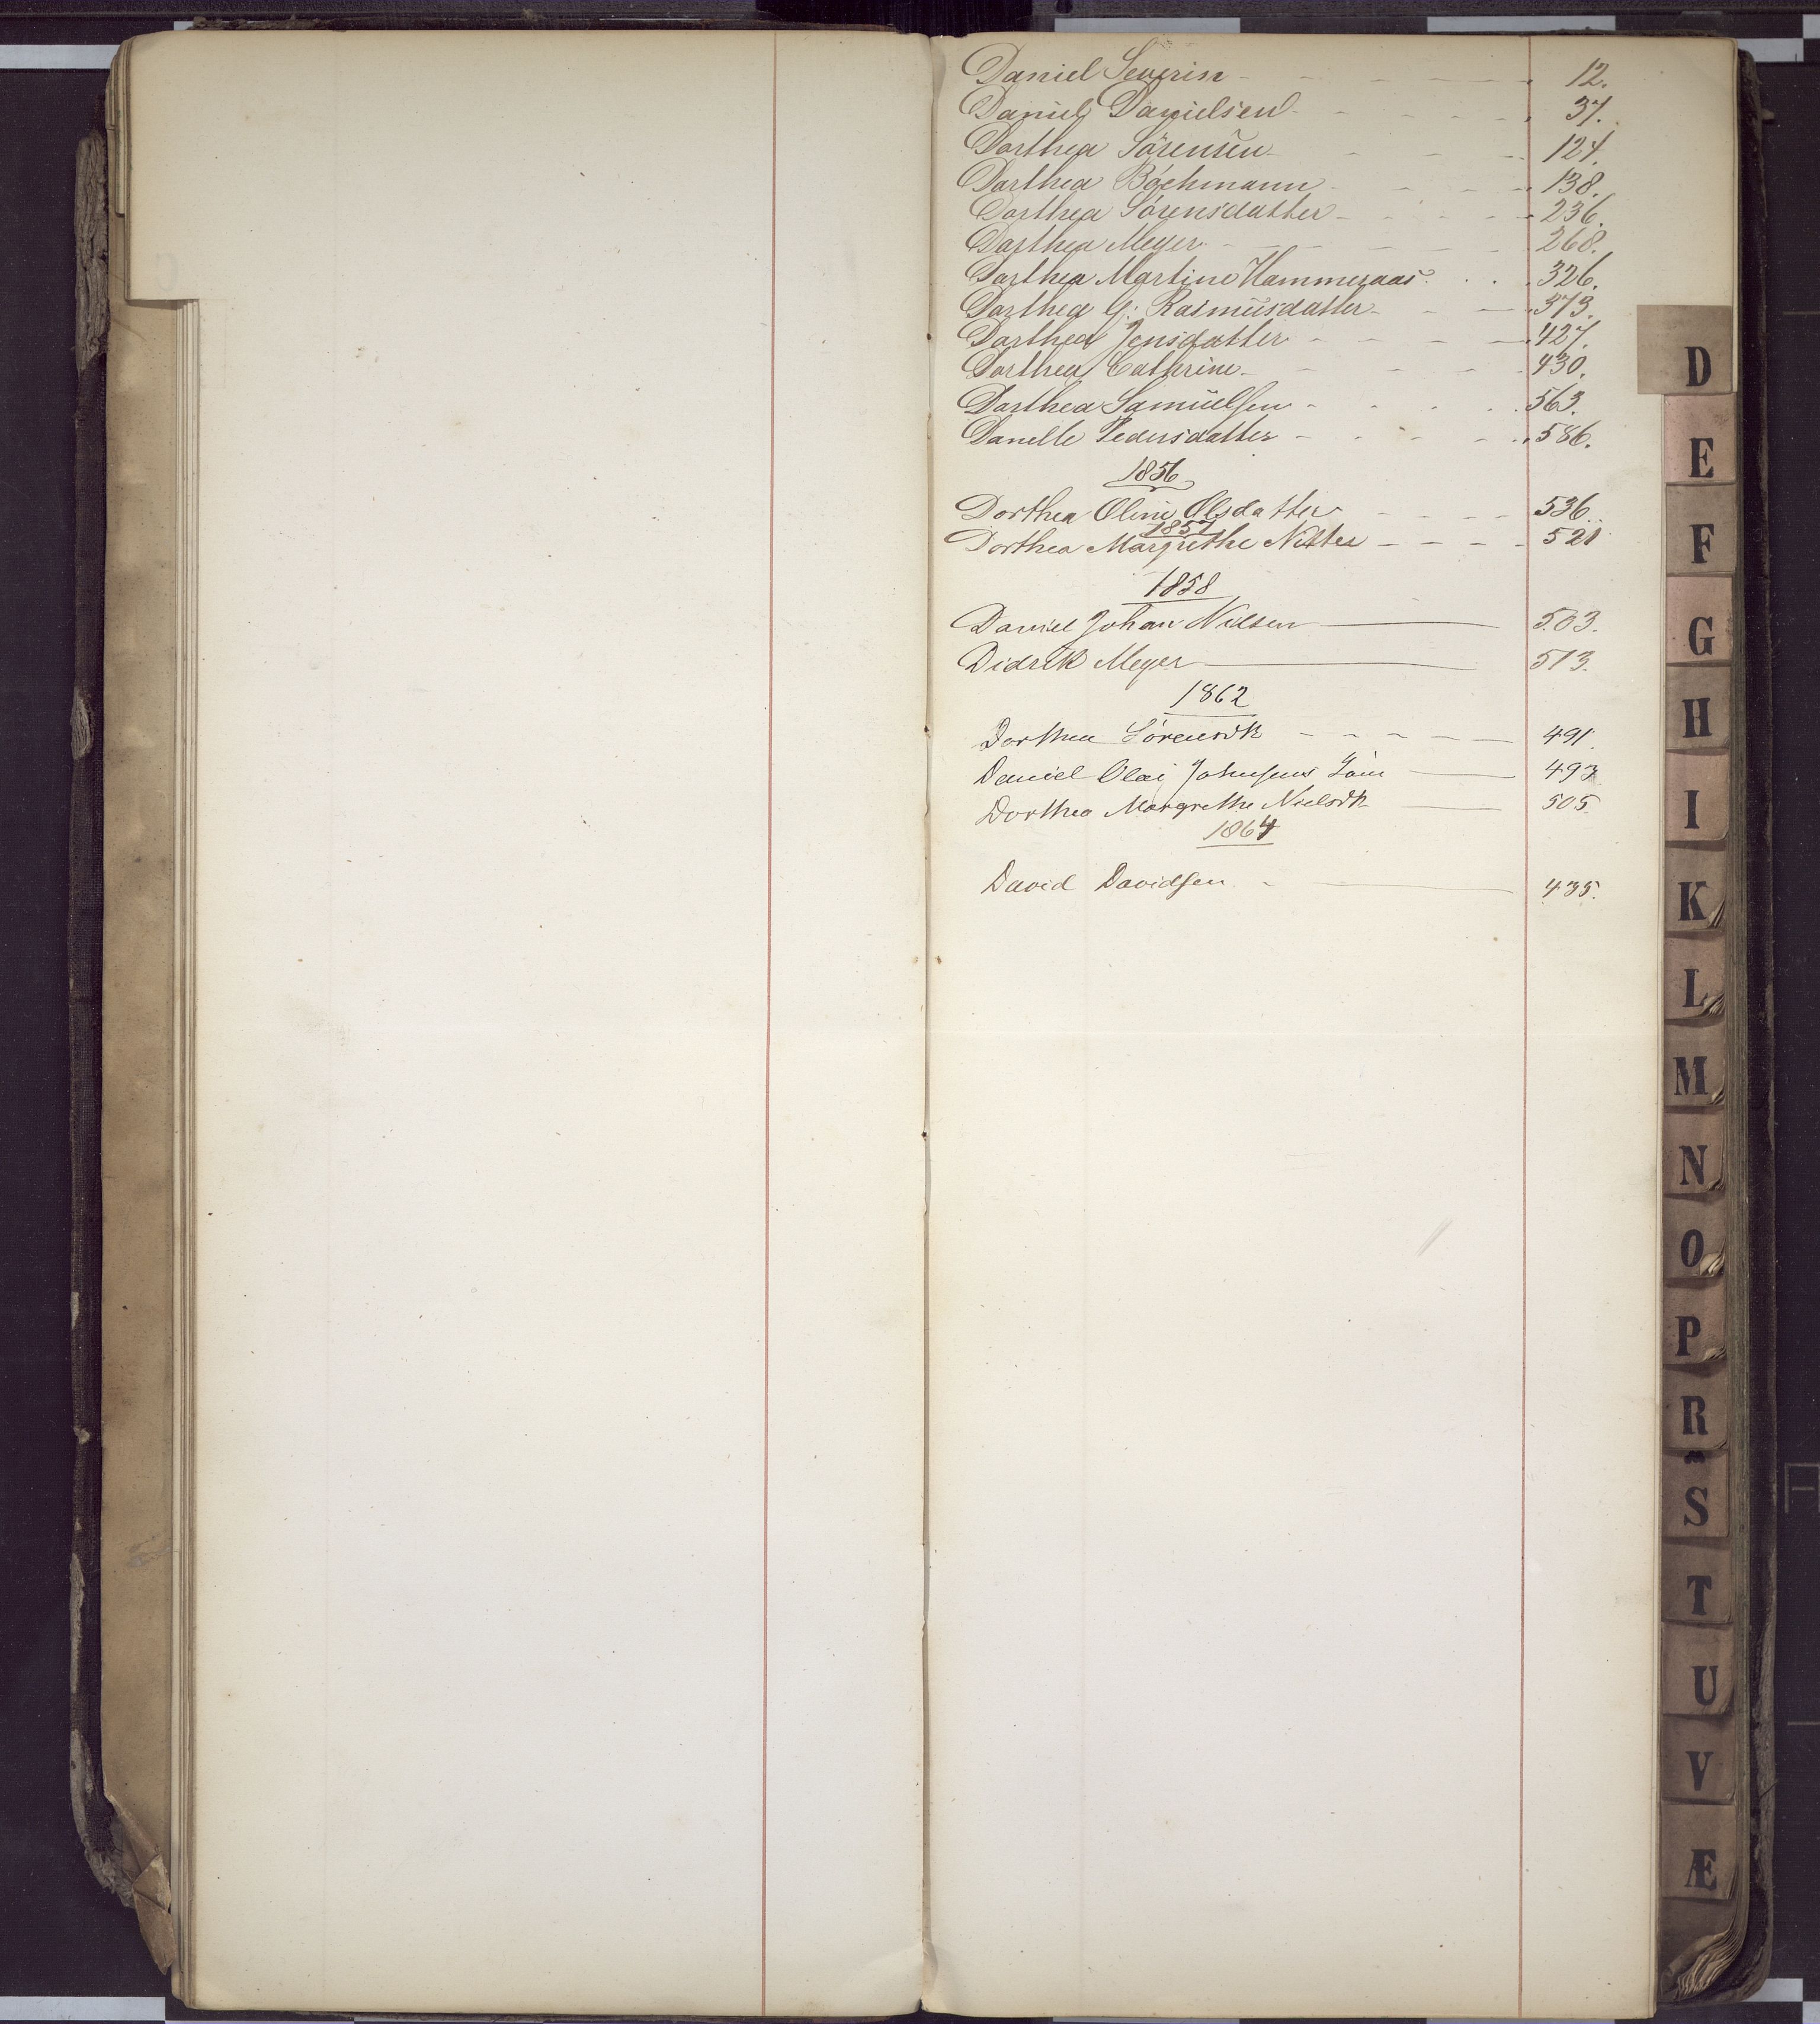 Daniel Severin - - - - - 12.
Daniel Danielsen - - - - - 37.
Dorthea Sørensen - - - 124.
Dorthea Böchmann - - - - 138.
Dorthea Sörensdatter - - - - 236.
Dorthea Meyer - - - - - 268.
Dorthea Martine Hammeraas . . . 326.
Dorthea G: Rasmüsdatter - - - 373.
Dorthea Jensdatter - - - - 427.
Dorthea Cathrine - - - - 430.
Dorthea Samüelsen - - - - 563.
Danelle Pedersdatter - - - - 586.
1856
Dorthea Oline Olsdatter - - - - 536
1857
Dorthea Margrethe Nitter - - - - 521
1858
Daniel Johan Nilsen — 503.
Didrik Meyer — 513.
1862
Dorthea Sörensdtr - - - - - 491.
Daniel Olai Johnsens — 493
Dorthea Margrethe Nielsdtr — 505
1864
David Davidsen - — 435.
D
E
F
G
H
I
K
L
M
N
O
P
R
S
T
U
V
Æ